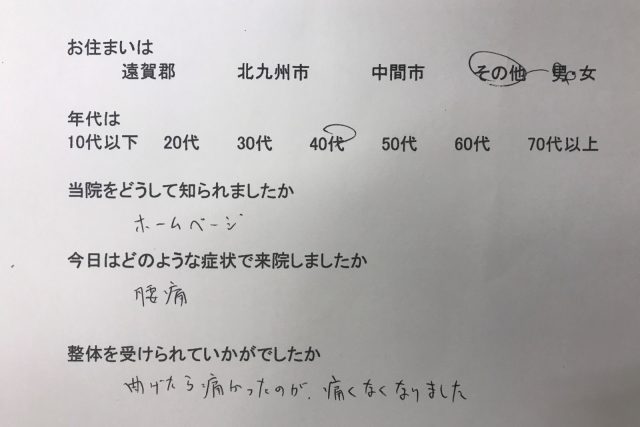 お住まいは
遠賀郡 北九州市 中間市 その他 男・女
年代は
10代以下 20代 30代 40代 50代 60代 70代以上
当院をどうして知られましたか
ホームページ
今日はどのような症状で来院しましたか
腰痛
整体を受けられていかがでしたか
曲げたら痛かったのが、痛くなくなりました